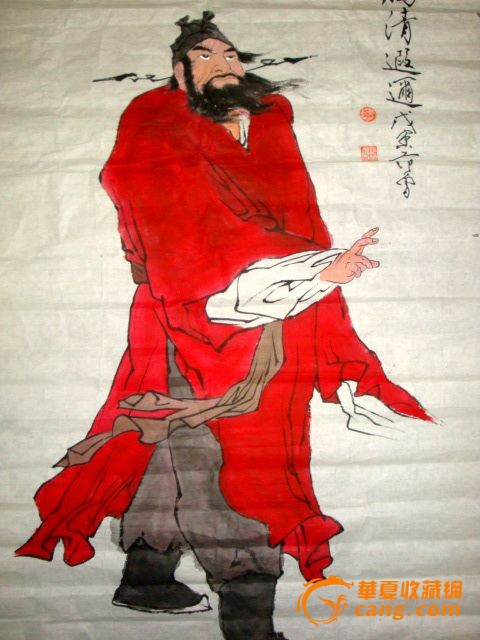 清遐邇戊寅范曾
華夏收藏網
cang.com